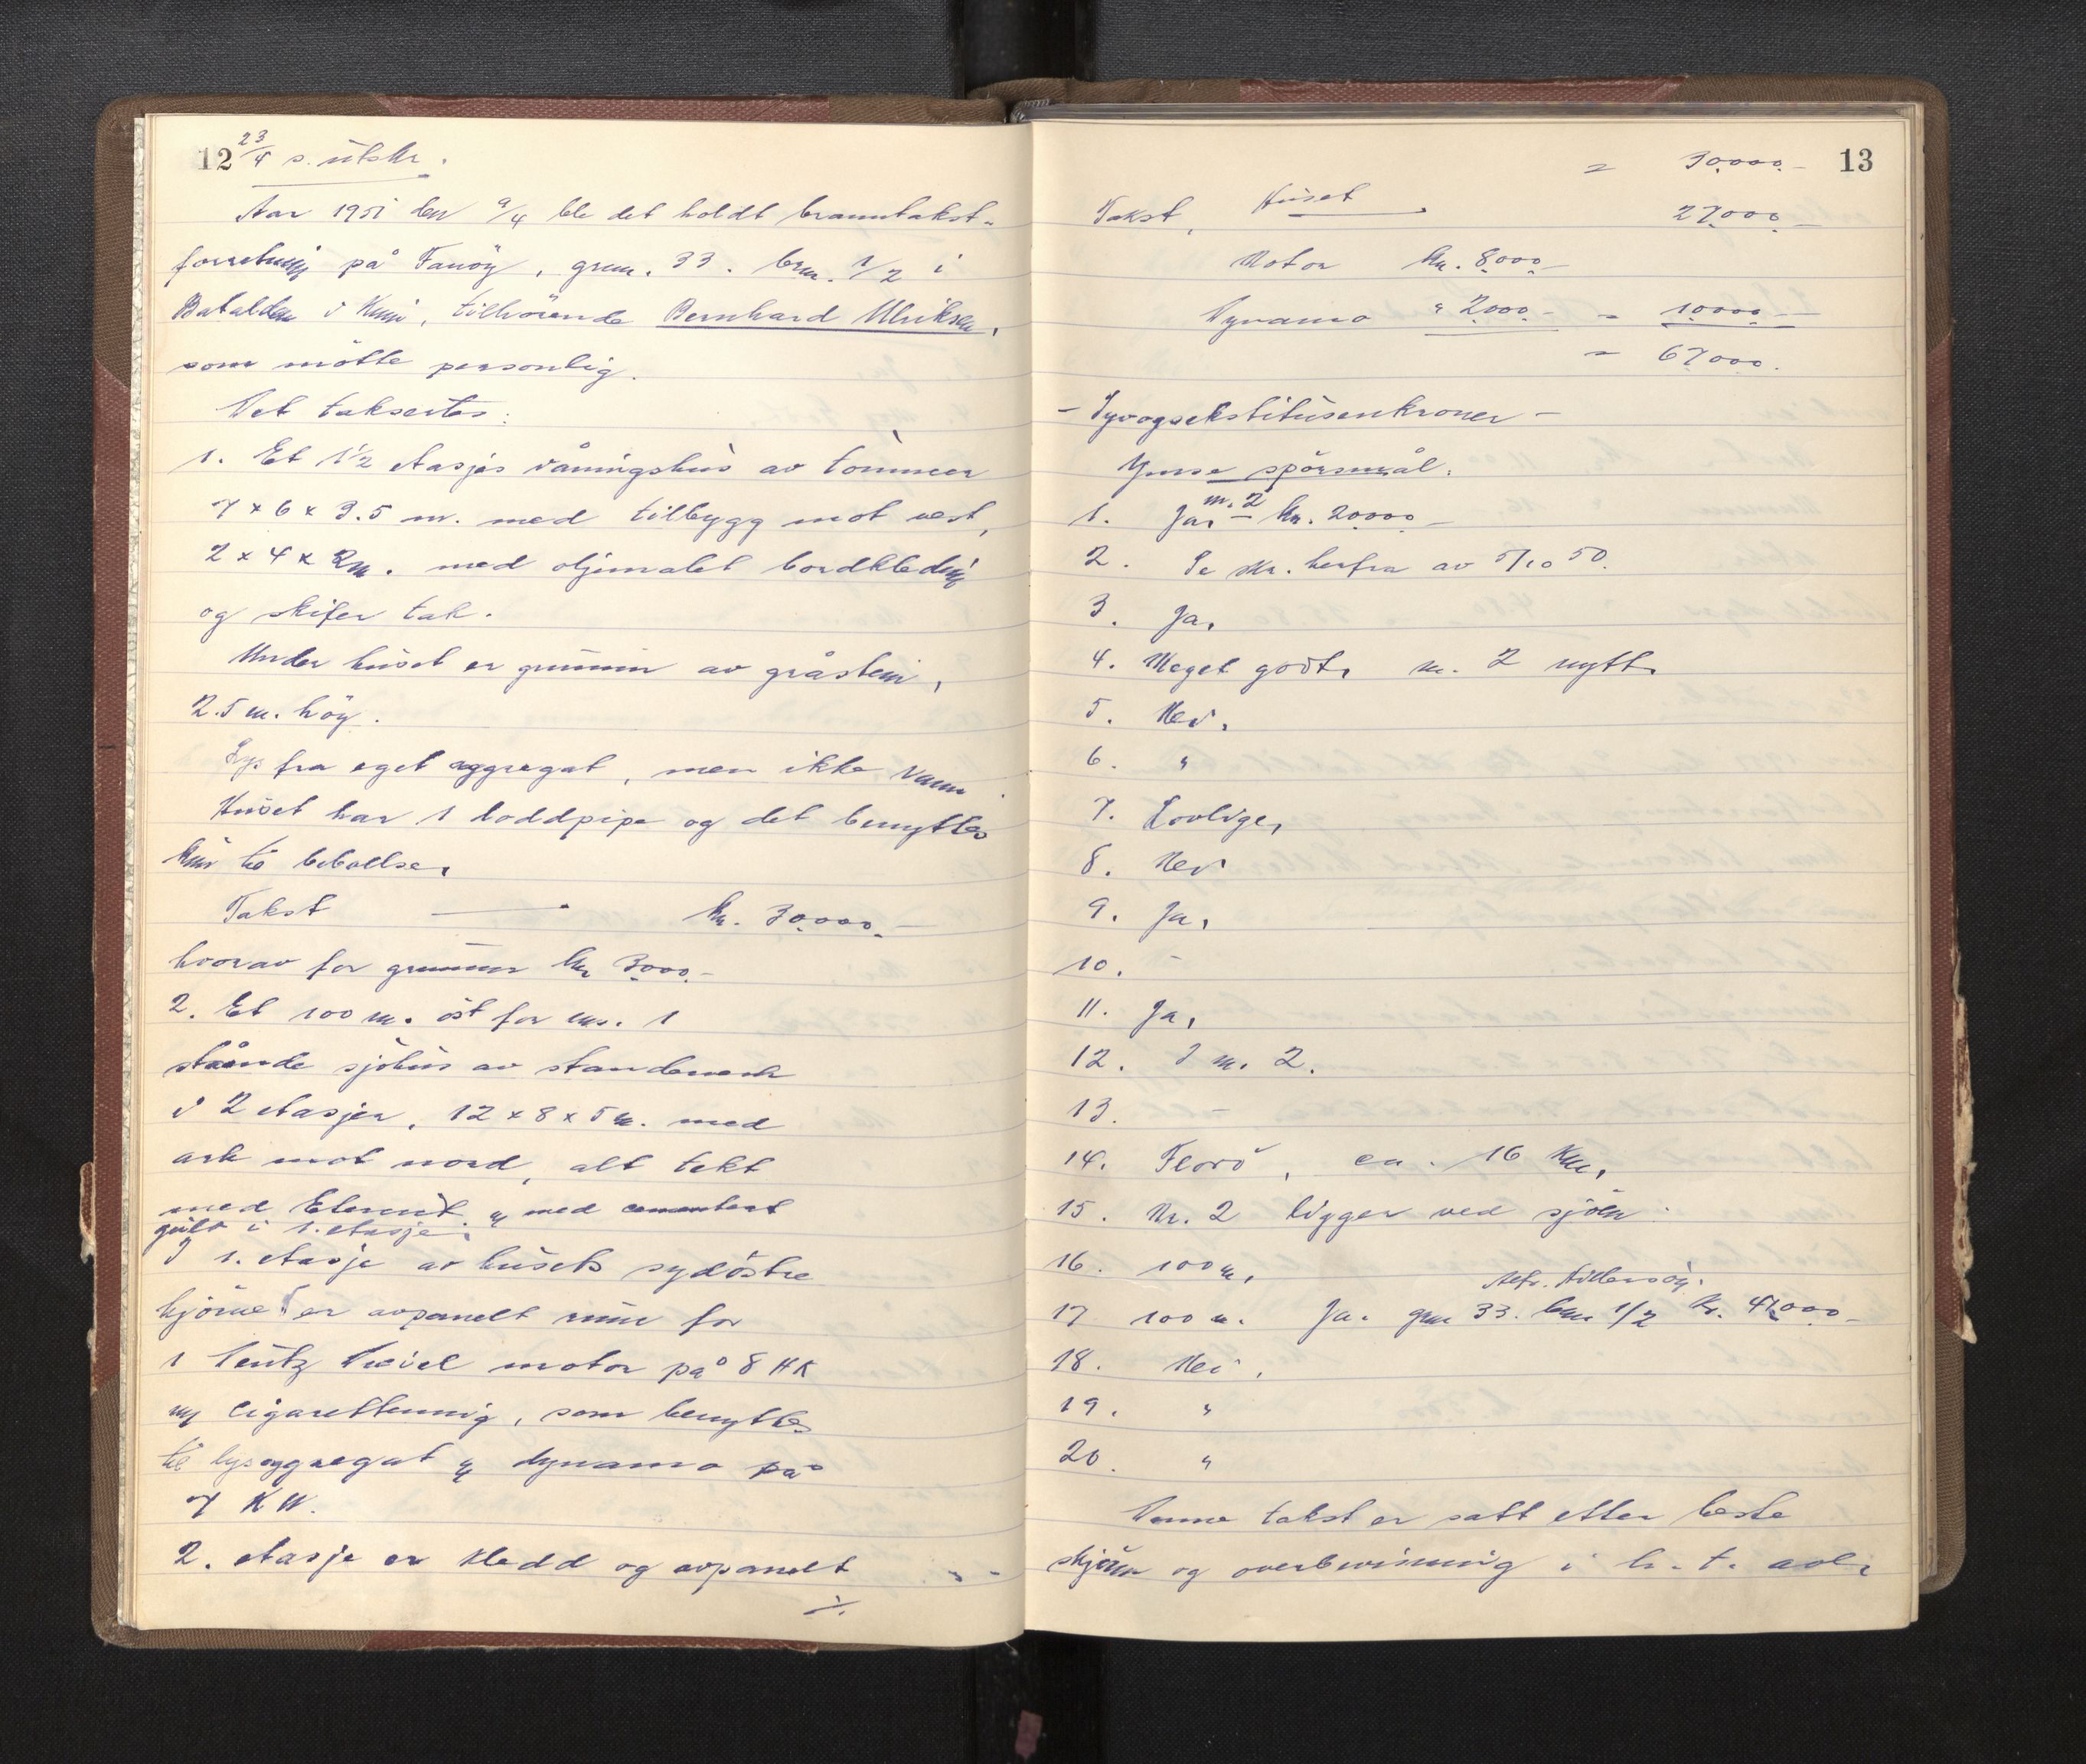 12 23/4 s. utskr.
Aar 1951 den 9/4 ble det holdt branntakst-
forretning på Fanöy, grnn. 33. brn. 1/2 i
Batalden i Kinn, tilhörende Bernhard Ulriksen,
som mötte personlig.
Det taksertes:
1. Et 1½ etasjes våningshus av tömmer
7 x 6 x 3.5 m. med tilbygg mot vest,
2 x 4 x 2m. med oljemalet bordkledning
og skifer tak.
Under huset er grunnmur av gråstein,
2.5 m. höy.
Lys fra eget aggregat, men ikke vann.
Huset har 1 loddpipe og det benyttes
kun til beboelse.
Takst — kr. 30.000.-
hvorav for grunnmur kr 3000.-
2. Et 100 m. öst for nr. 1
stående sjöhus av standerverk
i 2 etasjer, 12 x 8 x 5 m. med
ark mot nord, alt tekt
med Eternit, og med cementert
gulv i 1. etasje.
I 1. etasje av husets sydöstre
hjörne er avpanelt rum for
1 Deutz Diesel motor på 8 HK
m/ cigarettenning, som benyttes
til lysaggregat og dynamo på
7 KW.
2. etasje er kledd og avpanelt
./.
13
= 30.000.-
Takst, Huset 27.000.-
Motor kr. 8.000.-
Dynamo " 2.000.- = 10.000.-
= 67.000.
- Syvogsekstitusenkroner -
Ymse spörsmål:
1. Ja, nr. 2 - kr. 20.000.-
2. Se skr. herfra av 5/10 50.
3. Ja,
4. Meget godt, nr. 2 nytt.
5. Nei,
6. "
7. Lovlige,
8. Nei
9. Ja,
10. -
11. Ja,
12. I nr. 2.
13. -
14. Florö, ca. 16 km,
15. Nr. 2 ligger ved sjöen.
16. 100 m,
17 100 m. Ja. gnr 33. bnr 1/2 kr. 47.000.-
18. Nei,
19. "
20. "
Denne takst er satt etter beste
skjönn og overbevisning i h. t. avl.